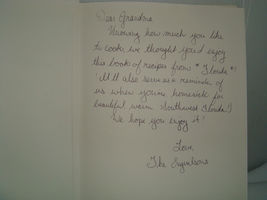 Dear Grandma,
Knowing how much you like
to cook, we thought you'd enjoy
this book of recipes from "Florida"!
It'll also serve as a reminder of
us when you're homesick for
beautiful warm Southwest Florida!
We hope you enjoy it!
Love,
The